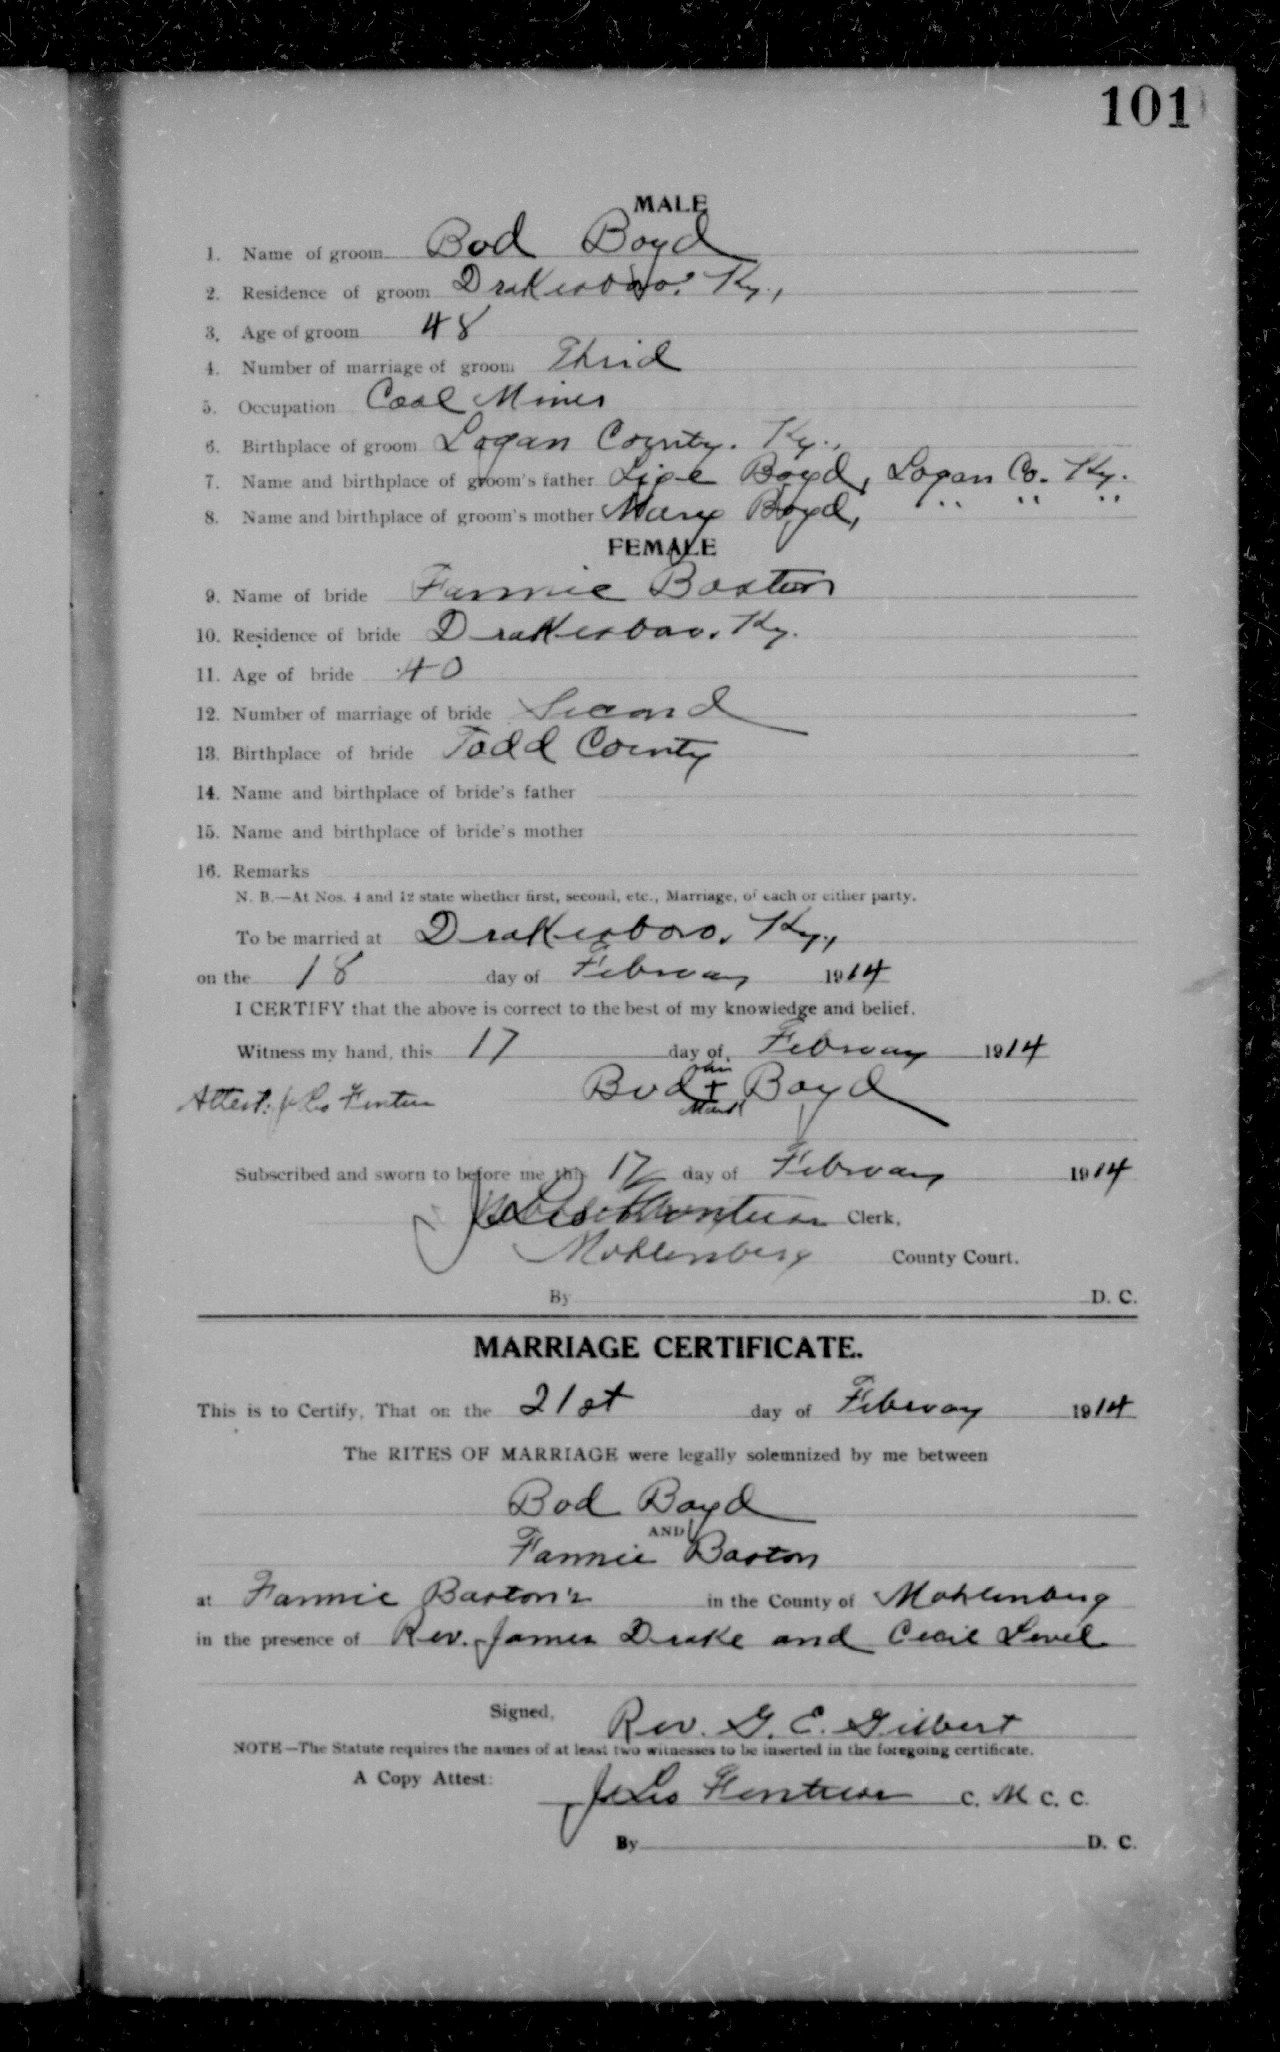 101
MALE
1. Name of groom Bod Boyd
2. Residence of groom Drakesboro. Ky.,
3. Age of groom 48
4. Number of marriage of groom Thrid
5. Occupation Coal Miner
6. Birthplace of groom Logan County. Ky.,
7. Name and birthplace of groom's father Lige Boyd, Logan Co. Ky.
8. Name and birthplace of groom's mother Mary Boyd, " " "
FEMALE
9. Name of bride Fannie Baston
10. Residence of bride Drakesboro. Ky.
11. Age of bride 40
12. Number of marriage of bride Second
13. Birthplace of bride Todd County
14. Name and birthplace of bride's father
15. Name and birthplace of bride's mother
16. Remarks
N. B.—At Nos. 4 and 12 state whether first, second, etc., Marriage, of each or either party.
To be married at Drakesboro. Ky.,
on the 18 day of February 1914
I CERTIFY that the above is correct to the best of my knowledge and belief.
Witness my hand, this 17 day of February 1914
his
Attest: Bod + Boyd
Mark
Subscribed and sworn to before me this 17 day of February 1914
Clerk,
Mohlenberg County Court.
By D. C.
MARRIAGE CERTIFICATE.
This is to Certify, That on the 21st day of February 1914
The RITES OF MARRIAGE were legally solemnized by me between
Bod Boyd
AND
Fannie Baston
at Fannie Baston's in the County of Mohlenberg
in the presence of Rev. James Drake and Cecil Lovel
Signed, Rev. G. E. Gilbert
NOTE—The Statute requires the names of at least two witnesses to be inserted in the foregoing certificate.
A Copy Attest: C. M. C. C.
By D. C.